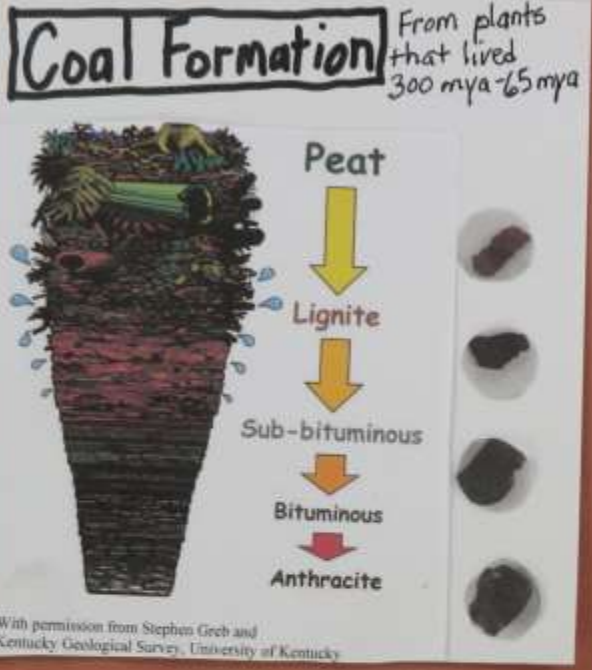 Coal Formation
From plants
that lived
300 mya-65mya
Peat
Lignite
Sub-bituminous
Bituminous
Anthracite
With permission from Stephen Greb and
Kentucky Geological Survey, University of Kentucky